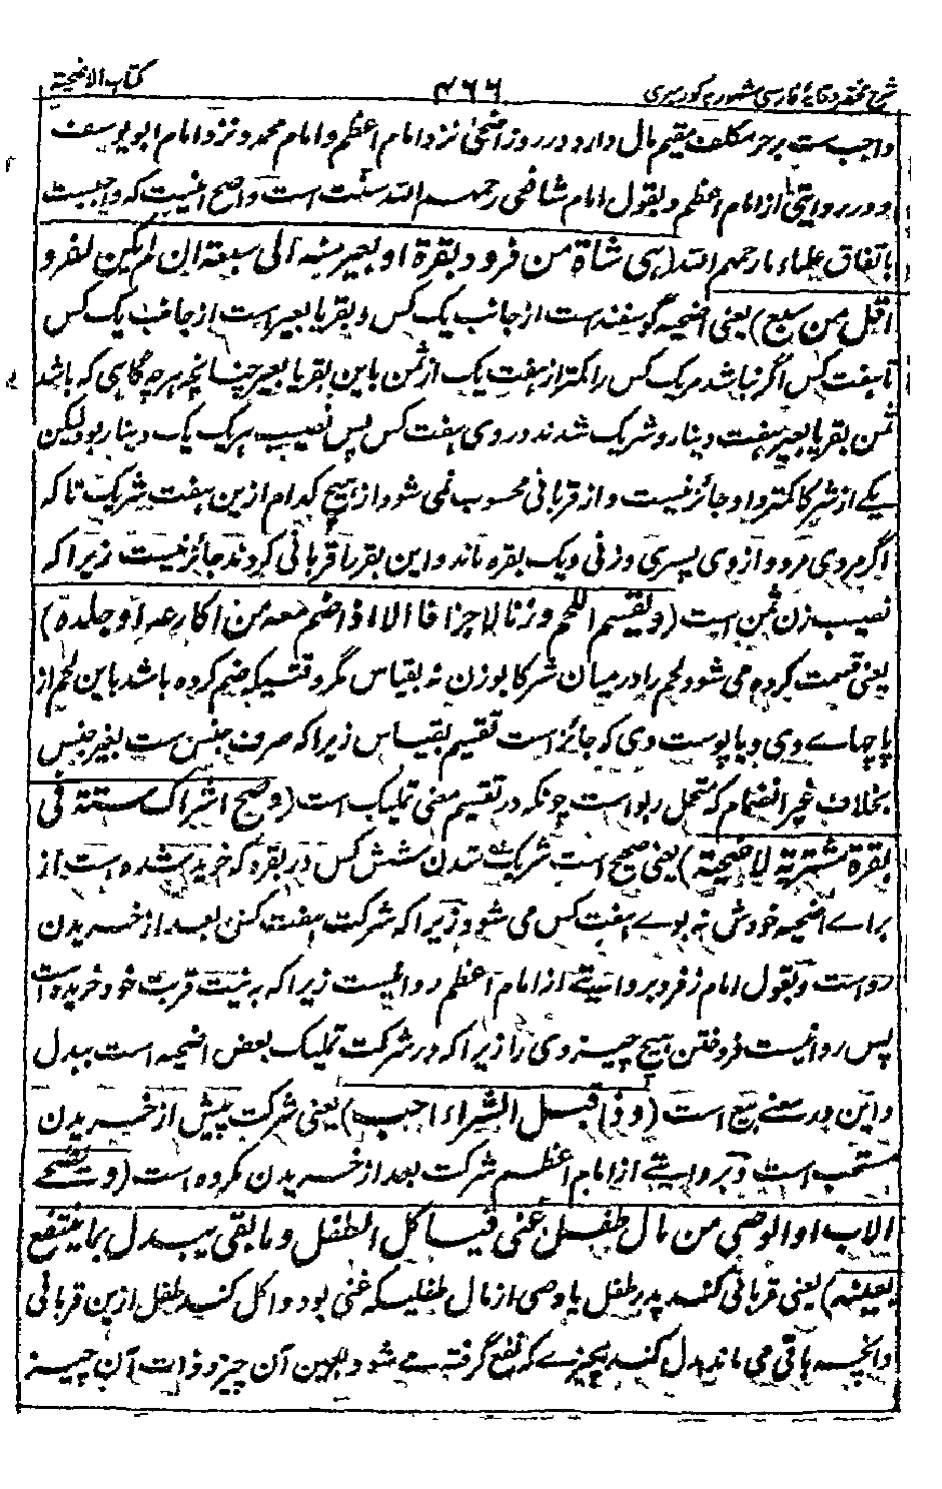 شرح مختصر وقایهٔ فارسی مشهور به کور میری ۴۶۶ کتاب الاضحیة
واجب ست بر حر مکلف مقیم مال دار در روز اضحی نزد امام اعظم و امام محمد و نزد امام ابو یوسف
و در روایتی از امام اعظم و بقول امام شافعی رحمهم الله سنت است و اصح اینست که واجبست
باتفاق علماء ما رحمهم الله (هی شاة من فرد و بقرة او بعیر منه الی سبعة ان لم یکن لفرد
اقل من سبع) یعنی اضحیه گوسفند است از جانب یک کس و بقر یا بعیر است از جانب یک کس
تا هفت کس اگر نباشد مر یک کس را کمتر از هفت یک از ثمن باین بقر یا بعیر چنانچه هر چه گاهی که باشد
ثمن بقر یا بعیر هفت دینار و شریک شدند در وی هفت کس پس نصیب هر یک یک دینار بود لیکن
یکے از شرکا کمتر داد جائز نیست و از قربانی محسوب نمی شود از هیچ کدام ازین هفت شریک تا که
اگر مردی مرد و از وی پسری و زنی و یک بقره ماند و این بقره را قربانی کردند جائز نیست زیرا که
نصیب زن ثمن است (و یقسم اللحم وزنا لا جزافا الا اذا ضم معه من اکارعه او جلده)
یعنی قسمت کرده می شود لحم را در میان شرکا بوزن نه بقیاس مگر وقتیکه ضم کرده باشد باین لحم از
پاچاے وی و یا پوست وی که جائز است تقسیم بقیاس زیرا که صرف جنس ست بغیر جنس
بخلاف غیر انضمام که محتمل ربوا است چونکه در تقسیم معنی تملیک است (و صح اشراک ستة فی
بقرة مشتریة لاضحیة) یعنی صحیح است شریک شدن شش کس در بقره که خرید شده است از
براے اضحیه خودش نه بوے هفت کس می شود زیرا که شرکت هفت کس بعد از خریدن
رواست و بقول امام زفر و بروایتے از امام اعظم روا نیست زیرا که به نیت قربت خود خریده است
پس روا نیست فروختن هیچ چیز وی را زیرا که در شرکت تملیک بعض اضحیه است ببدل
و این در معنے بیع است (و ذا قبل الشراء احب) یعنی شرکت پیش از خریدن
مستحب است و بروایتے از امام اعظم شرکت بعد از خریدن مکروه است (و یضحے
الاب او الوصی من مال طفل غنی فیأکل الطفل و ما بقی یبدل بما ینتفع
بعینه) یعنی قربانی کند پدر طفل یا وصی از مال طفلیکه غنی بود و اکل کند طفل ازین قربانی
و آنچه باقی می ماند بدل کند بچیزے که نفع گرفته مے شود بعین آن چیز و ذات آن چیز